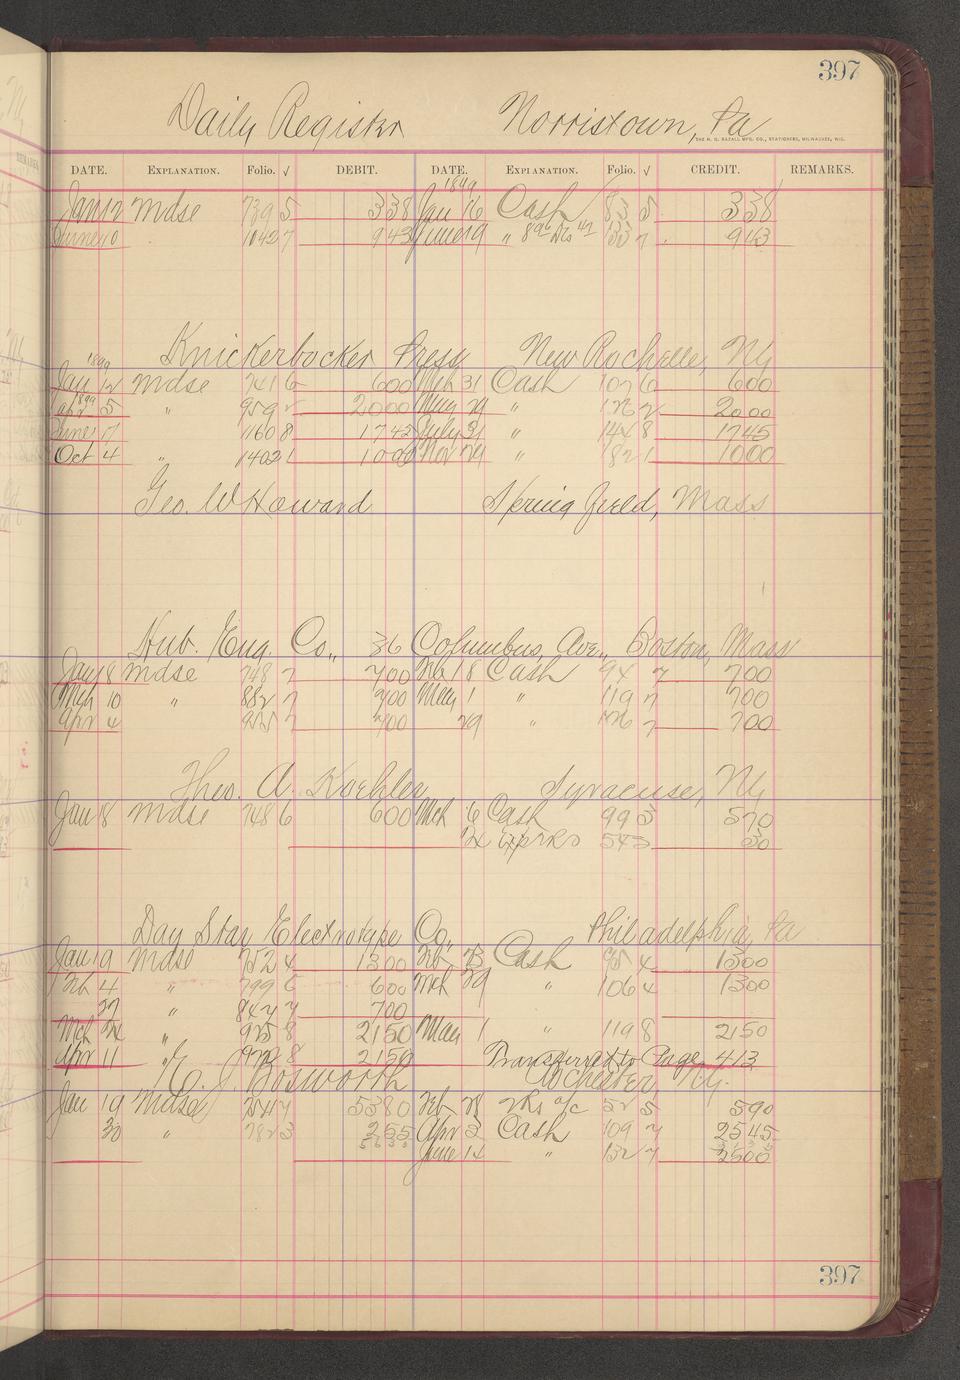 397
Daily Register Norristown, Pa
THE H. G. RAZALL MFG. CO., STATIONERS, MILWAUKEE, WIS.
DATE. EXPLANATION. Folio. √ DEBIT. DATE. EXPLANATION. Folio. √ CREDIT. REMARKS.
1899
Jan 12 mdse 739 5 338 Jan 16 Cash 83 5 338
June 10 1042 7 943 June 19 " 133 7 943
Knickerbocker Press New Rochelle, Ny
1899
Jan 12 mdse 741 6 600 Mch 31 Cash 107 6 600
1899
Apr 5 " 959 2 2000 May 29 " 126 2 2000
June 17 1160 8 1742 July 31 " 144 8 1745
Oct 4 " 1402 1 1000 Nov 29 " 182 1 1000
Geo. W Howard Springfield, Mass
Hub. Eng. Co., 36 Columbus Ave., Boston, Mass
Jan 18 mdse 748 7 700 Feb 18 Cash 94 7 700
Mch 10 " 882 7 700 May 1 119 7 700
Apr 4 955 7 700 29 " 126 7 700
Theo. A. Koehler Syracuse, Ny
Jan 18 mdse 748 6 600 Mch 6 Cash 99 5 570
24 545 30
Day Star Electrotype Co., Philadelphia, Pa
Jan 19 mdse 752 4 1300 Feb 23 Cash 95 4 1300
Feb 4 " 799 6 600 Mch 29 " 106 4 1300
27 " 847 7 700
Mch 24 " 925 8 2150 May 1 " 119 8 2150
Apr 11 " 972 8 2150 Transferred to Page 413
C. J. Bosworth Rochester, Ny.
Jan 19 Mdse 754 7 5380 Feb 28 52 5 590
30 " 782 3 255 Apr 3 Cash 109 7 2545
5635
June 14 " 132 7 2500
397